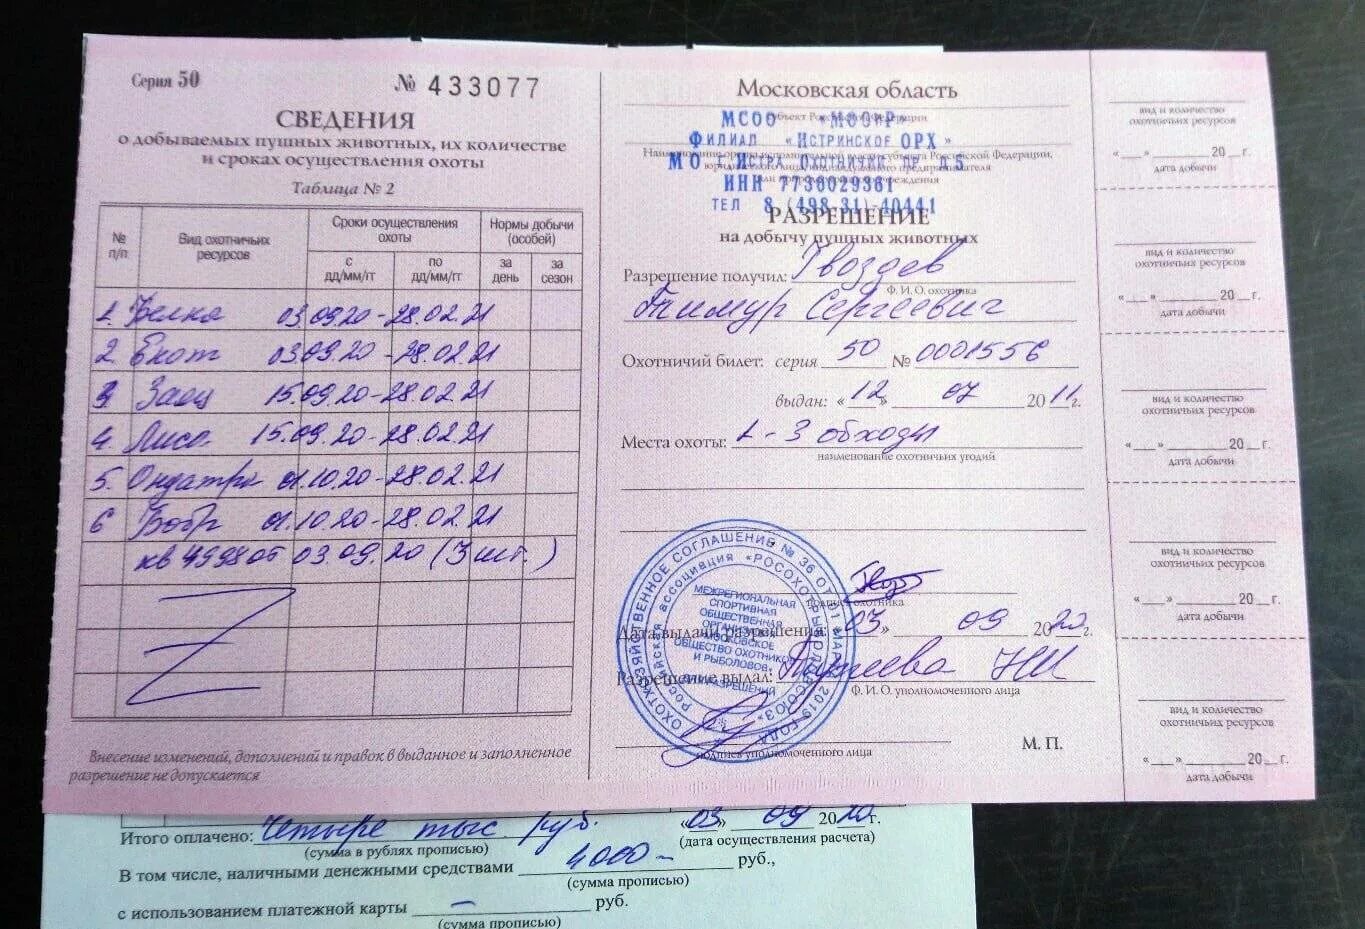 Серия 50 № 433077
СВЕДЕНИЯ
о добываемых пушных животных, их количестве
и сроках осуществления охоты
Таблица № 2
№ п/п
Вид охотничьих ресурсов
Сроки осуществления охоты
Нормы добычи (особей)
с дд/мм/гг
по дд/мм/гг
за день
за сезон
1. Белка 03.09.20-28.02.21
2. Енот 03.09.20-28.02.21
3 Заяц 15.09.20-28.02.21
4. Лиса 15.09.20-28.02.21
5. Ондатра 01.10.20-28.02.21
6 Бобр 01.10.20-28.02.21
кв от 03.09.20 (3 шт.)
Внесение изменений, дополнений и правок в выданное и заполненное
разрешение не допускается
Московская область
субъект Российской Федерации
МСОО «МООиР»
ФИЛИАЛ «ИСТРИНСКОЕ ОРХ»
МО г.ИСТРА ОХОТНИЧИЙ ПР. Д.5
ИНН 7736029361
ТЕЛ 8 (498-31)-40441
РАЗРЕШЕНИЕ
на добычу пушных животных
Разрешение получил: Гвоздев
Ф. И. О. охотника
Тимур Сергеевич
Охотничий билет: серия 50 № 0001556
выдан: «12» 07 2011г.
Места охоты: 1-3 обходы
наименование охотничьих угодий
подпись охотника
Дата выдачи разрешения: «03» 09 2020г.
Разрешение выдал: НИ
Ф. И. О. уполномоченного лица
подпись уполномоченного лица
М. П.
ОХОТХОЗЯЙСТВЕННОЕ СОГЛАШЕНИЕ № 36 ОТ 01 МАРТА 2019 ГОДА
Российская ассоциация «РОСОХОТРЫБОЛОВСОЮЗ»
МЕЖРЕГИОНАЛЬНАЯ
СПОРТИВНАЯ
ОБЩЕСТВЕННАЯ
ОРГАНИЗАЦИЯ
МОСКОВСКОЕ
ОБЩЕСТВО ОХОТНИКОВ
И РЫБОЛОВОВ
ДЛЯ РАЗРЕШЕНИЙ
вид и количество
охотничьих ресурсов
«__» ______ 20__г.
дата добычи
вид и количество
охотничьих ресурсов
«__» ______ 20__г.
дата добычи
вид и количество
охотничьих ресурсов
«__» ______ 20__г.
дата добычи
вид и количество
охотничьих ресурсов
«__» ______ 20__г.
дата добычи
вид и количество
охотничьих ресурсов
«__» ______ 20__г.
дата добычи
Итого оплачено: Четыре тыс. руб. «03» 09 2020г.
(сумма в рублях прописью) (дата осуществления расчета)
В том числе, наличными денежными средствами 4000- руб.,
(сумма прописью)
с использованием платежной карты — руб.
(сумма прописью)